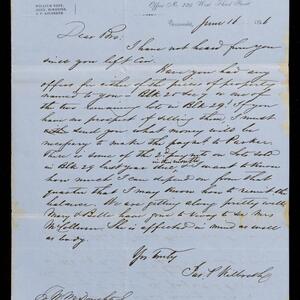 Office No. 226 West Third Street
June 11 1886
Dear Bro:
I have not heard from you
since you left Cin.
Have you had any
offers for either of the pieces of property
named to you - Blk 2 &
the two remaining lots in Blk 29? If you
have no prospect of selling them, I must
send you what money will be
necessary to make the payment to Parker.
There is some of the
in Blk 29 last year due, & I want to know
how much I can depend on from that
quarter that I may know how to remit the
balance. We are getting along pretty well.
Mary & Belle have gone to living to see Mrs
McCollum. She is affected in mind as well
as body.
Yrs truly
Jas.